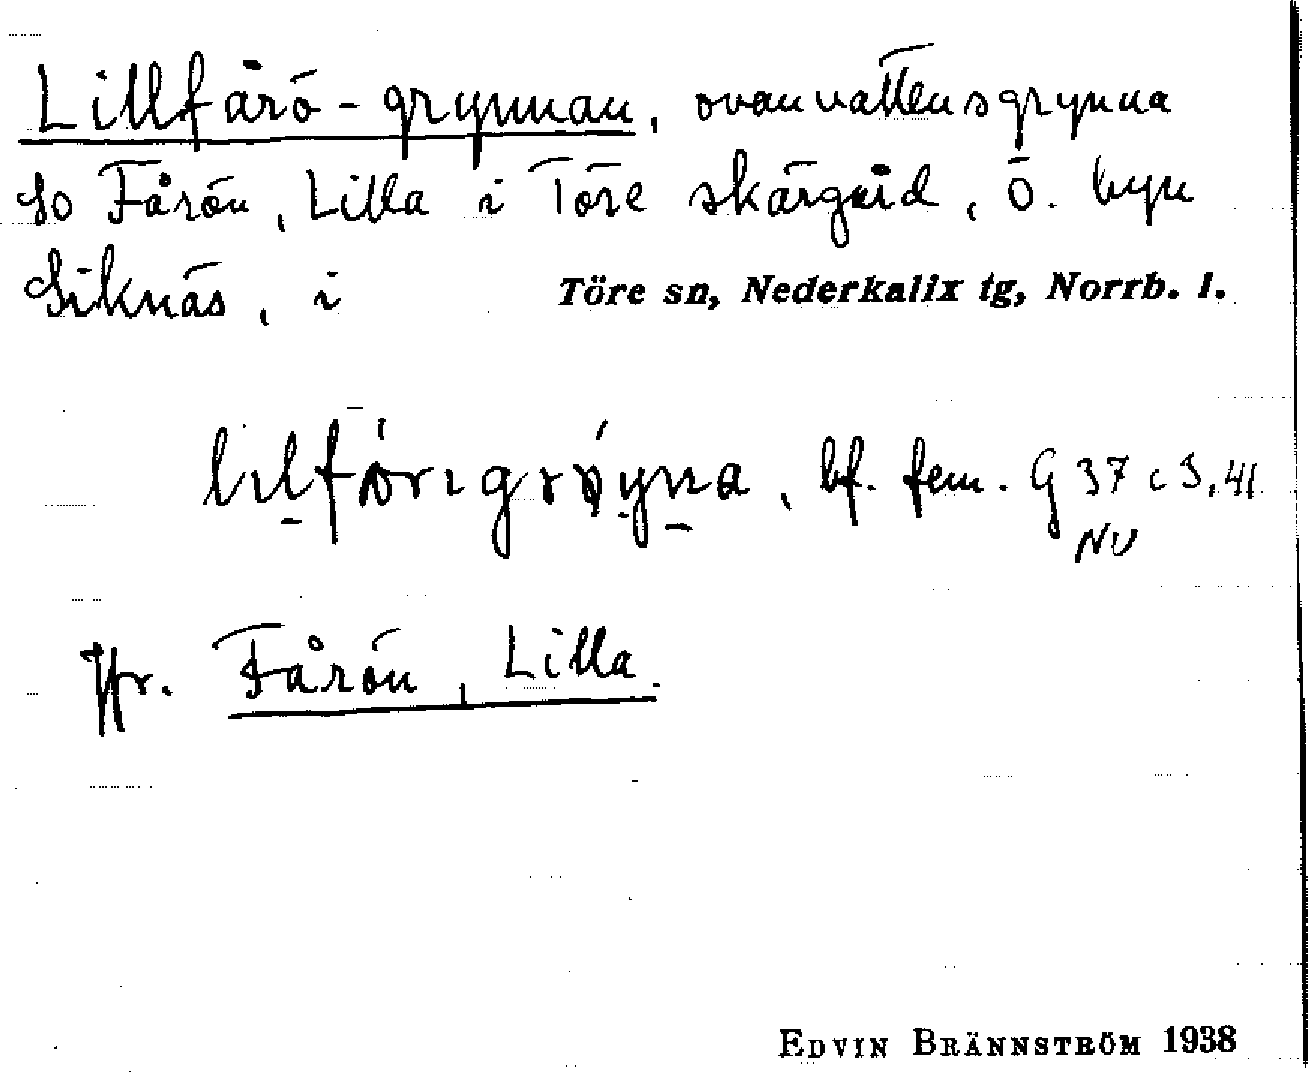 Lillfårö-grynnan, ovanvattensgrynna
so Fårön, Lilla i Töre skärgård, ö. byn
Siknäs, i Töre sn, Nederkalix tg, Norrb. l.
bf. fem. G 37 c 3, 41
NU
Jfr. Fårön, Lilla.
EDVIN BRÄNNSTRÖM 1938